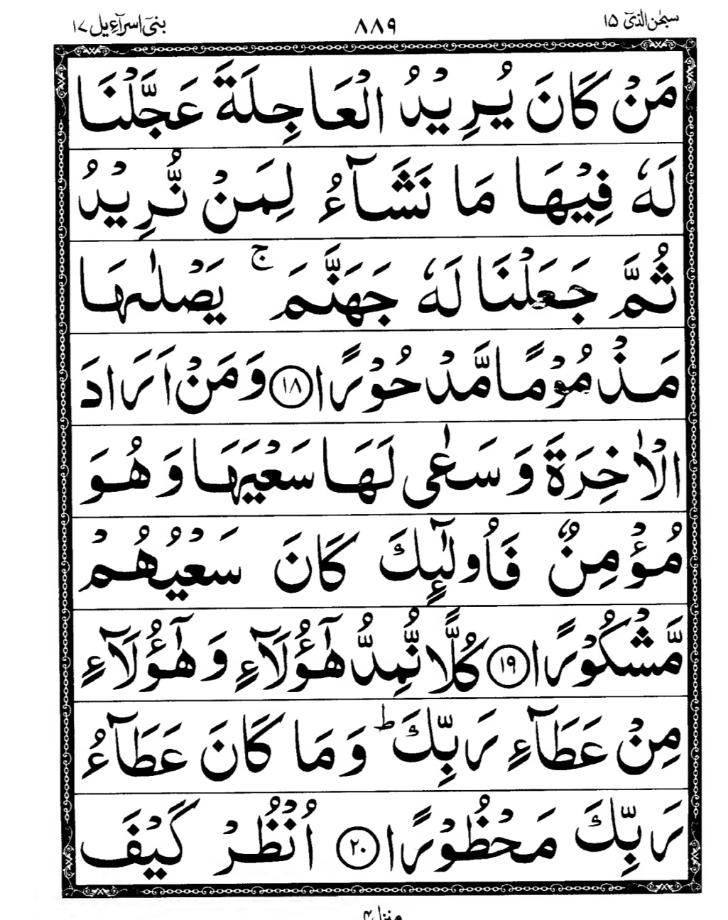 سبحٰن الذیٓ ۱۵ ۸۸۹ بنیٓ اسرآءیل ۱۷
مَنْ كَانَ يُرِيْدُ الْعَاجِلَةَ عَجَّلْنَا
لَهٗ فِيْهَا مَا نَشَآءُ لِمَنْ نُّرِيْدُ
ثُمَّ جَعَلْنَا لَهٗ جَهَنَّمَ ۚ يَصْلٰىهَا
مَذْمُوْمًا مَّدْحُوْرًا ﴿۱۸﴾ وَمَنْ اَرَادَ
الْاٰخِرَةَ وَسَعٰى لَهَا سَعْيَهَا وَهُوَ
مُؤْمِنٌ فَاُولٰٓئِكَ كَانَ سَعْيُهُمْ
مَّشْكُوْرًا ﴿۱۹﴾ كُلًّا نُّمِدُّ هٰٓؤُلَآءِ وَهٰٓؤُلَآءِ
مِنْ عَطَآءِ رَبِّكَ ؕ وَمَا كَانَ عَطَآءُ
رَبِّكَ مَحْظُوْرًا ﴿۲۰﴾ اُنْظُرْ كَيْفَ
منزل ۴